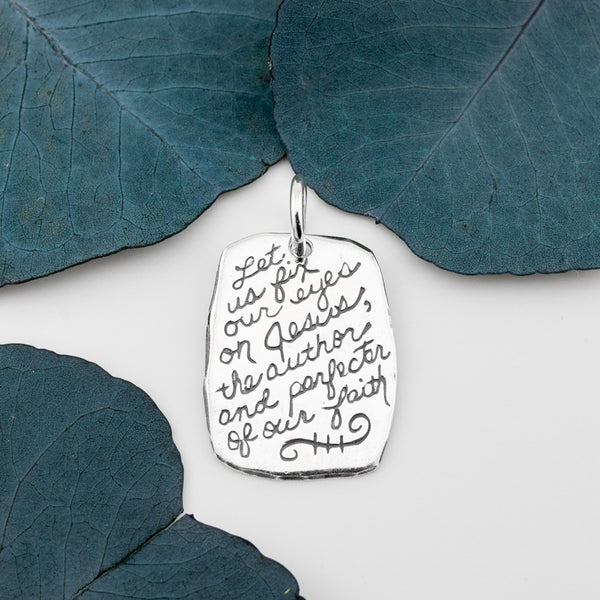 Let
us fix
our eyes
on Jesus,
the author
and perfecter
of our faith